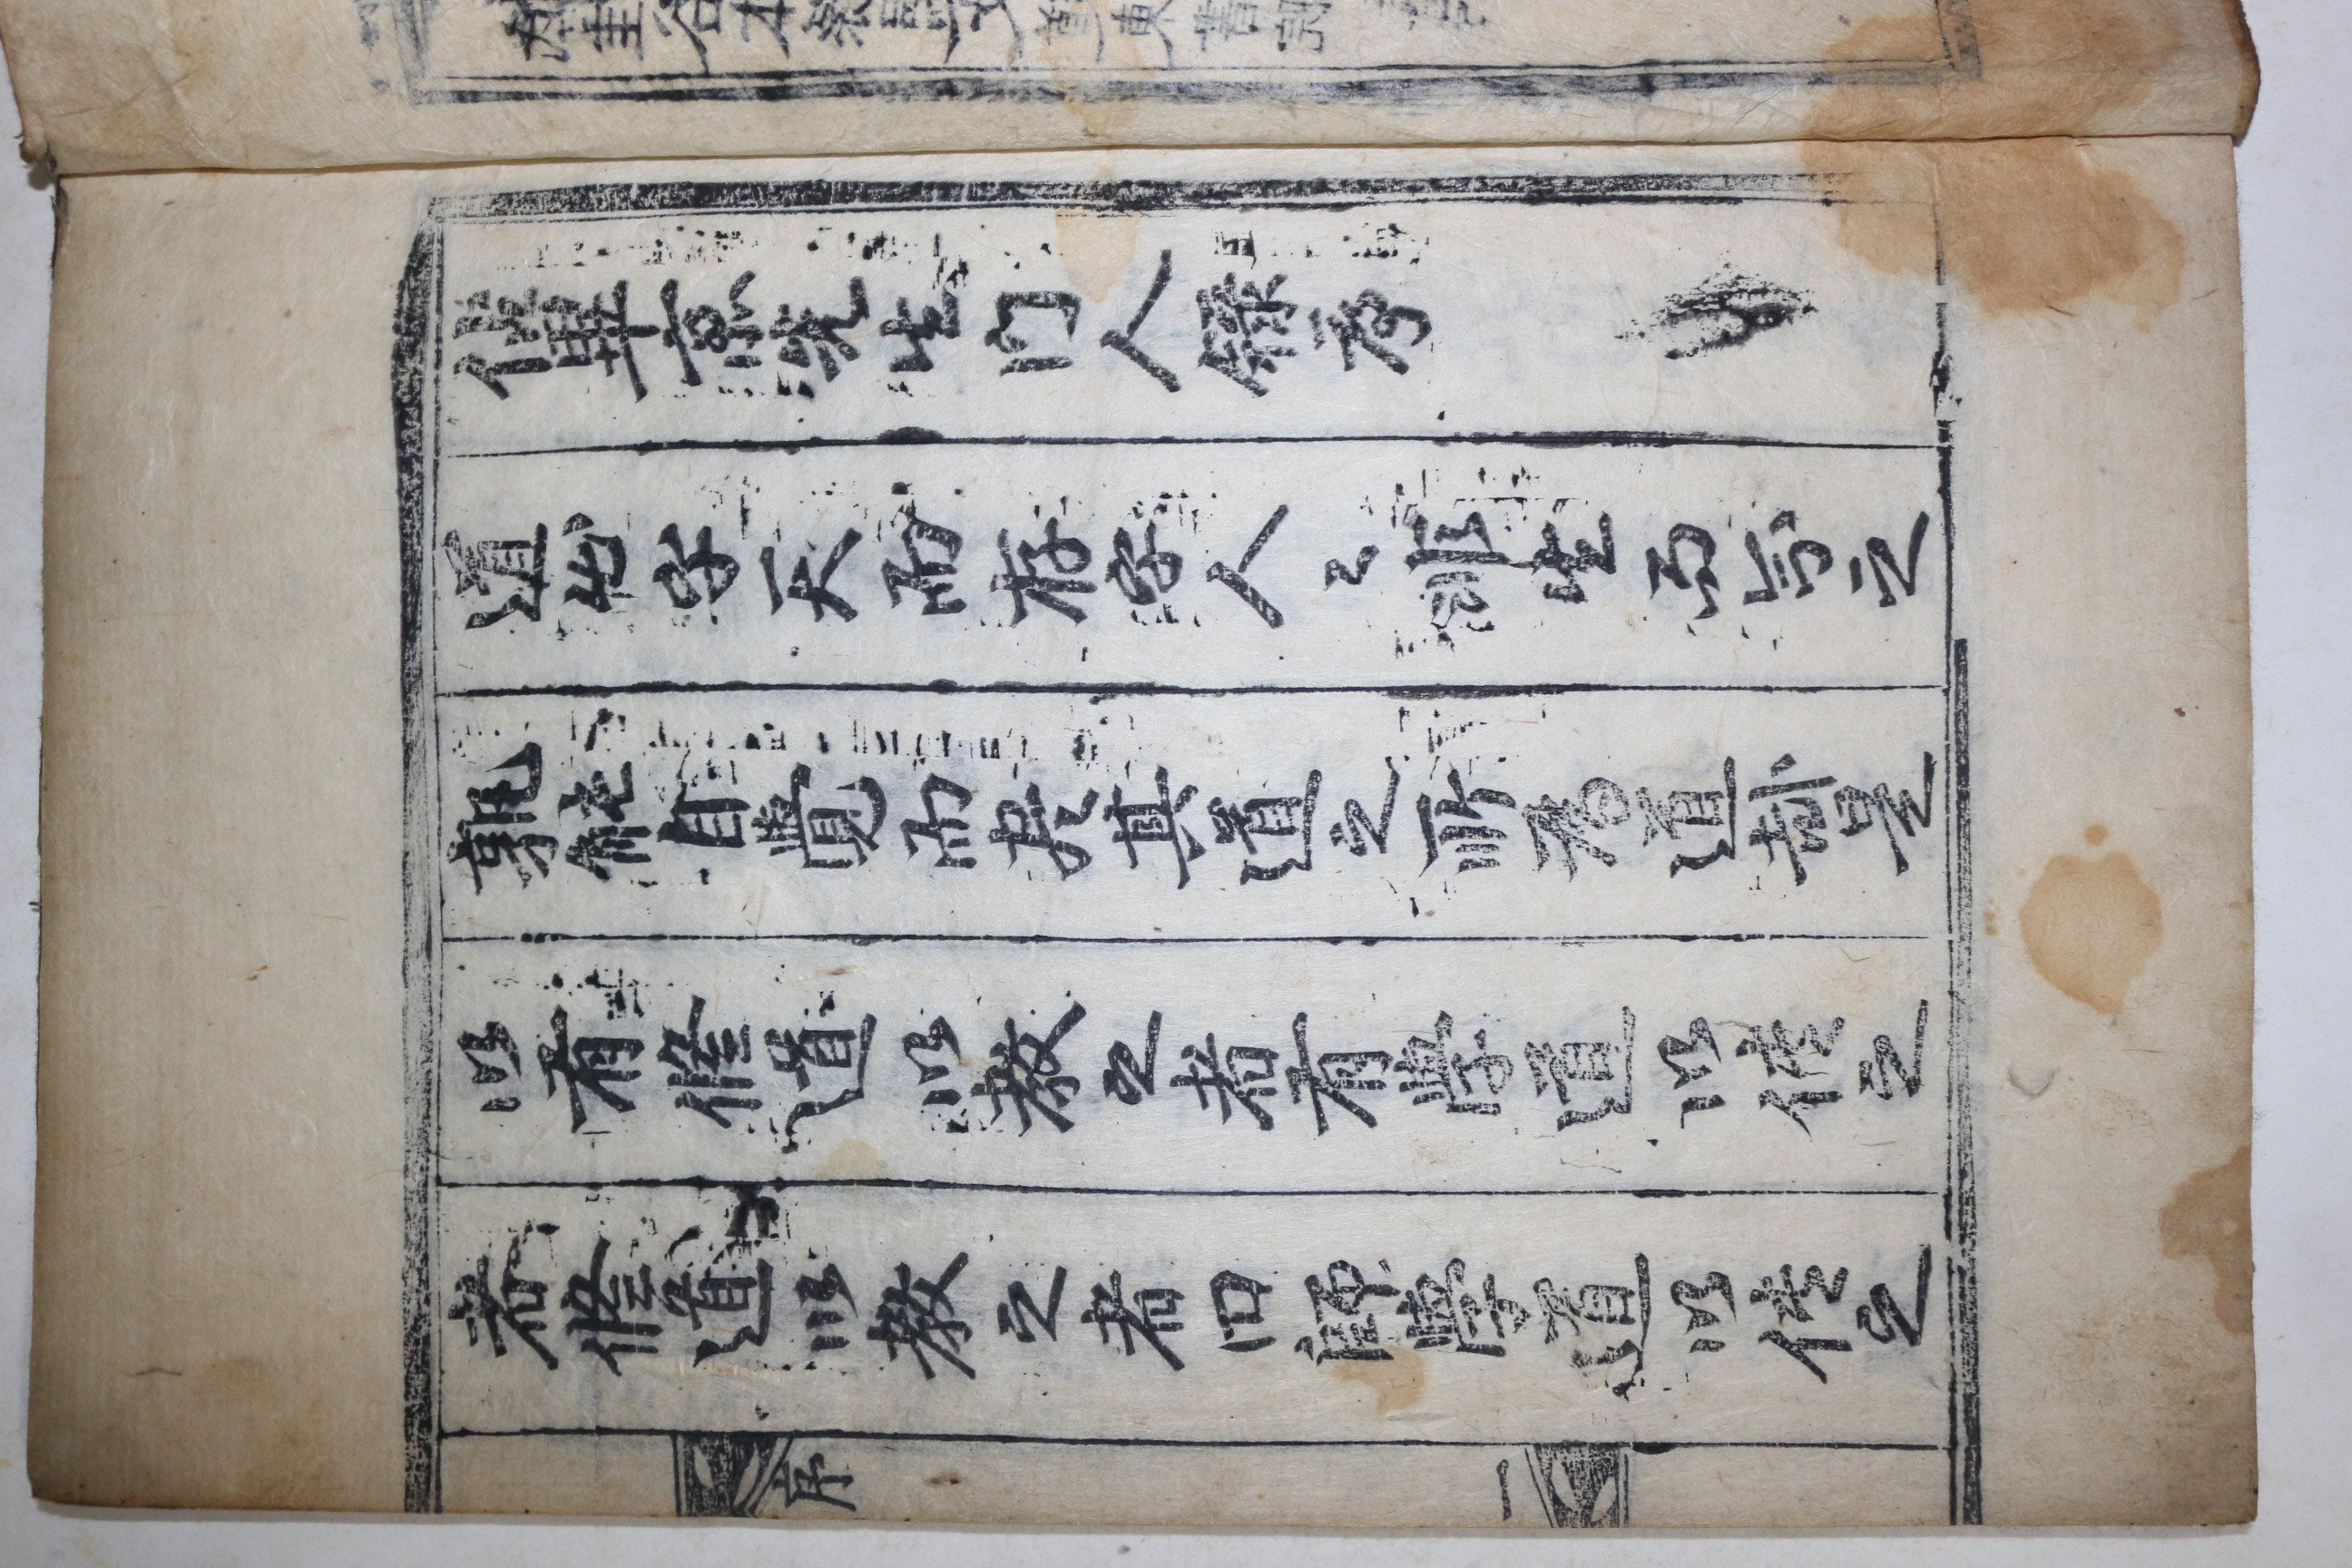 佔畢斎先生门人録序
道出乎天而存乎人〻非生而知之
孰能自覺而尽其道之所為道哉是
以有修道以教之者有學道以傳之
者修道以教之者曰師學道以傳之
序
一